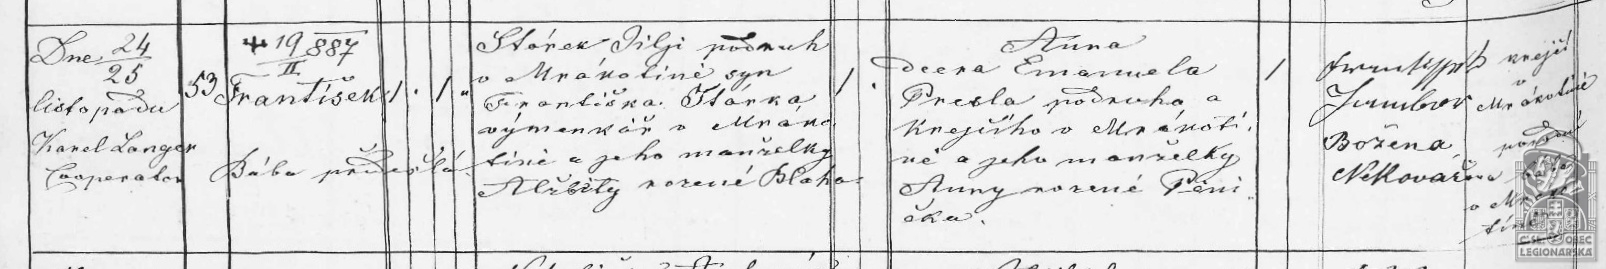 Dne 24/25
listopadu
Karel Langer
Cooperator
53
✝ 19/II 887
František
Bába předešlá.
Stárek Jiljí podruh
v Mrákotíně syn
Františka Stárka,
výmenkář v Mráko-
tíně a jeho manželky
Alžběty rozené Blaha.
Anna
dcera Emanuela
Presla podruha a
Krejčího v Mrákotí-
ně a jeho manželky
Anny rozené Pěni-
čka.
krejčí
v
Mrákotíně
Božena
Nekovář
ČS. OBEC
LEGIONÁŘSKÁ